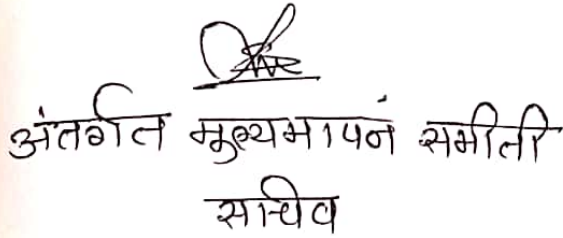 अंतर्गत मुल्यमापन समीती
सचिव